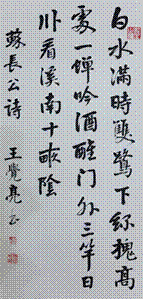 白水滿時雙鷺下綠槐高
處一蟬吟酒醒门外三竿日
卧看溪南十畝陰
蘇長公詩 王覺亮书